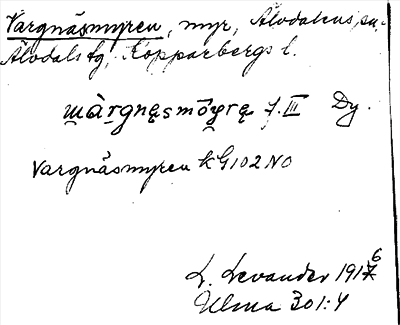 Vargnäsmyren, myr, Älvdalens sn,
Älvdals tg, Kopparbergs l.
wàrgnęsmöyrę f. III Dy.
Vargnäsmyren k G102 NO
L. Levander 1916
Ulma 301:4